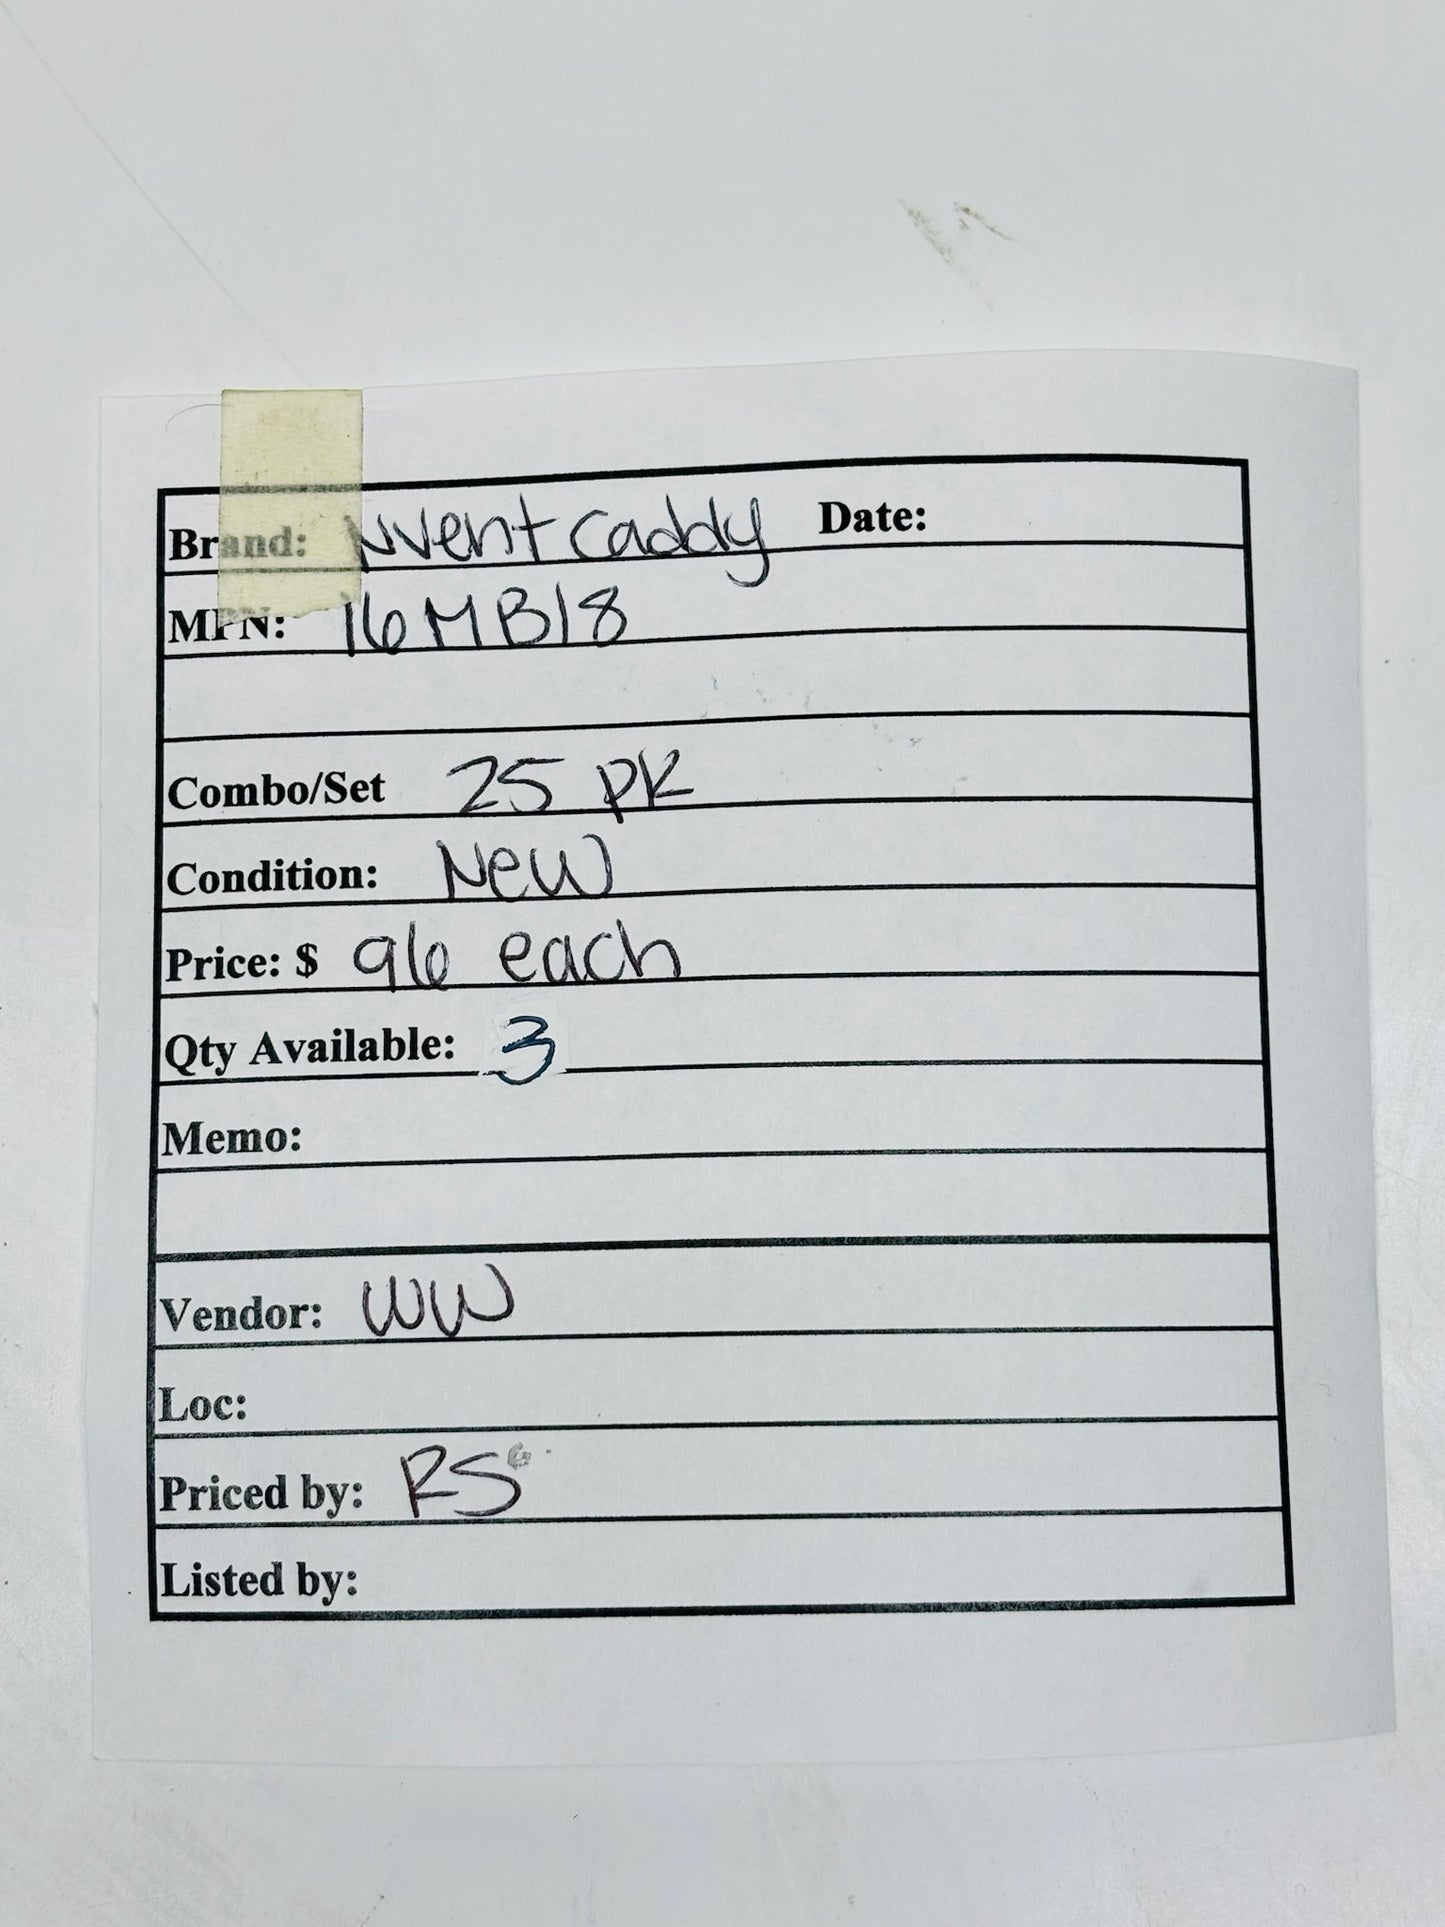 Brand: Nvent Caddy Date:
MPN: 16MB18
Combo/Set 25 PK
Condition: New
Price: $ 96 each
Qty Available: 3
Memo:
Vendor: WW
Loc:
Priced by: RS
Listed by: